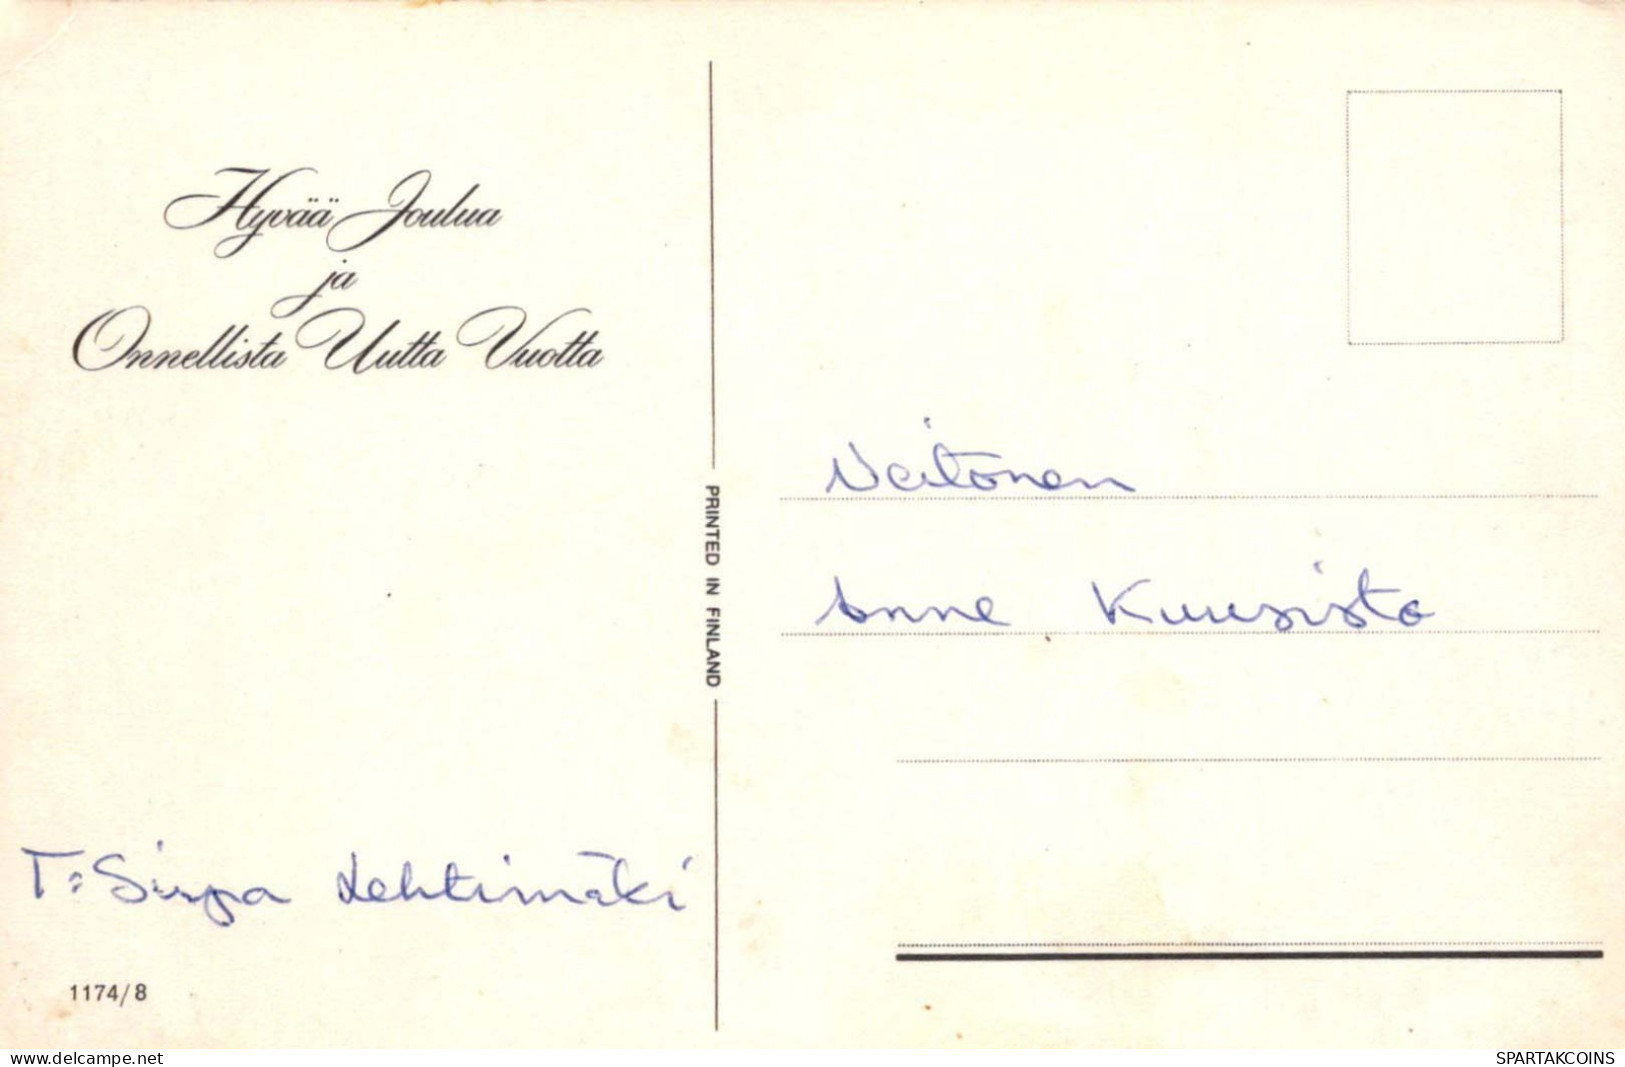 Hyvää Joulua
ja
Onnellista Uutta Vuotta
T: Sirpa Lehtimäki
1174/8
PRINTED IN FINLAND
Neitonen
Anne Kuusisto
www.delcampe.net
SPARTAKCOINS